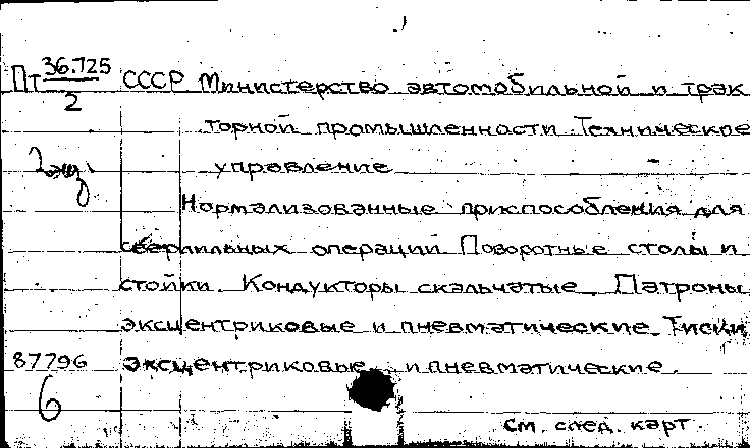 Пт 36.725 СССР Министерство автомобильной и трак
2
торной промышленности. Техническое
2 экз.
управление
Нормализованные приспособления для
сверлильных операций. Поворотные столы и
стойки. Кондукторы скальчатые. Патроны
эксцентриковые и пневматические. Тиски
87796 эксцентриковые и пневматические.
6
см. след. карт.